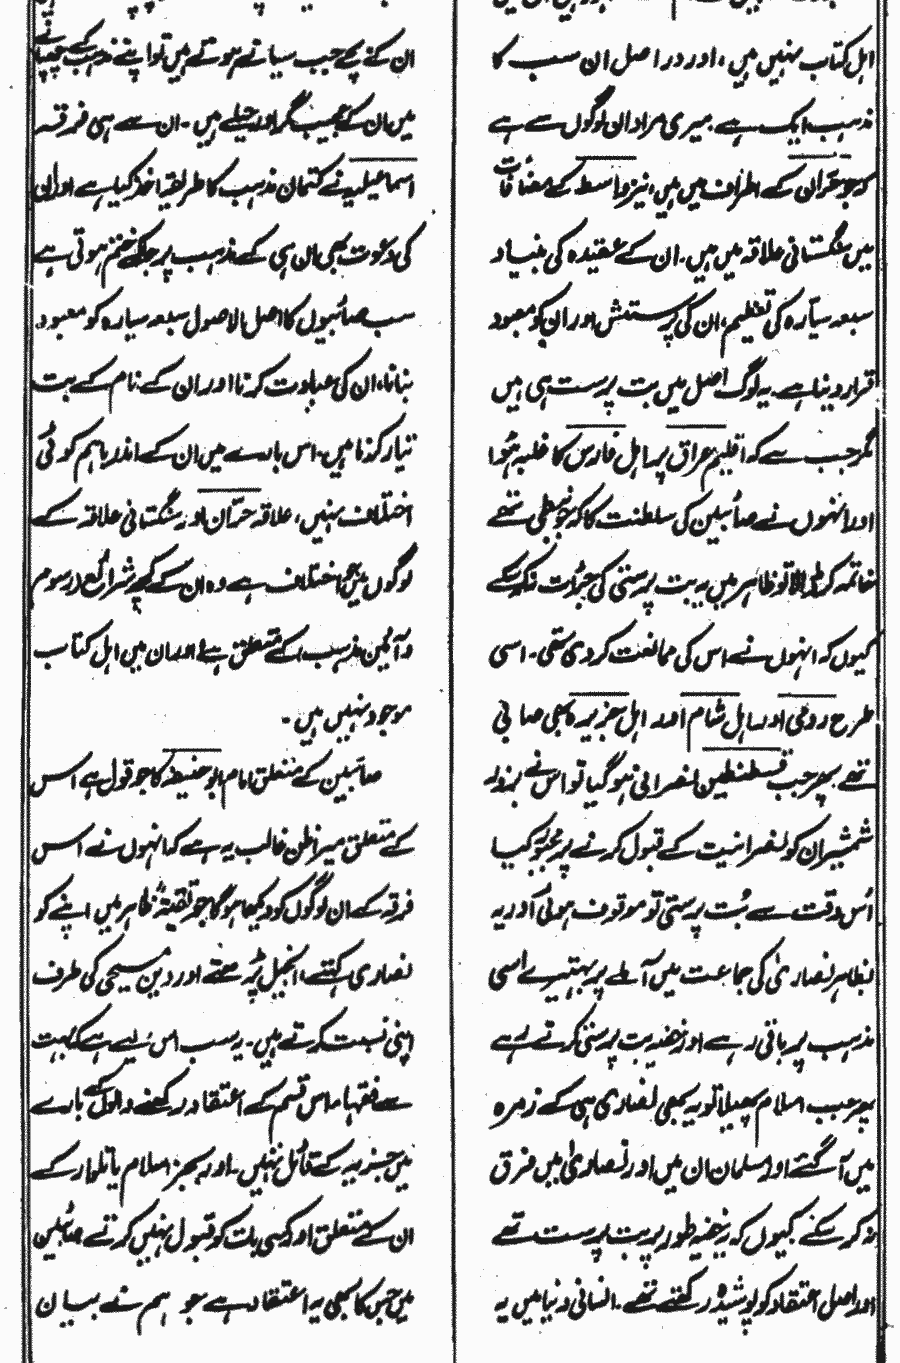 اہل کتاب نہیں ہیں ، اور در اصل ان سب کا
مذہب ایک ہے ۔ میری مراد ان لوگوں سے ہے
کہ جو حرّان کے اطراف میں ہیں، نیز واسط کے مضافات
میں سنگستانی علاقہ میں ہیں۔ ان کے عقیدہ کی بنیاد
سبعہ سیّارہ کی تعظیم، ان کی پرستش اور ان کو معبود
قرار دینا ہے۔ یہ لوگ اصل میں بت پرست ہی ہیں
مگر جب سے کہ اقلیم عراق پر اہل فارس کا غلبہ ہؤا
اور انہوں نے صائبین کی سلطنت کا کہ جو نبطی تھے
خاتمہ کر ڈالا تو ظاہر میں یہ بت پرستی کی جرأت نہ کر سکے
کیوں کہ انہوں نے اس کی ممانعت کر دی تھی۔ اسی
طرح رومی اور اہل شام اور اہل جزیرہ بھی صابی
تھے پھر جب قسطنطین نصرانی ہو گیا تو اس نے بزور
شمشیران کو نصرانیت کے قبول کرنے پر مجبور کیا
اُس وقت سے بُت پرستی تو موقوف ہوئی اور یہ
بظاہر نصاریٰ کی جماعت میں آ ملے پر بہتیرے اسی
مذہب پر باقی رہے اور خفیہ بت پرستی کرتے رہے
پھر جب اسلام پھیلا تو یہ بھی نصاریٰ ہی کے زمرہ
میں آ گئے اور مسلمان ان میں اور نصاریٰ میں فرق
نہ کر سکے کیوں کہ یہ خفیہ طور پر بت پرست تھے
اور اصل اعتقاد کو پوشیدہ رکھتے تھے۔ انسانی دنیا میں یہ
ان کے بچے جب سیانے ہوتے ہیں تو اپنے مذہب کے چھپانے
میں ان کے عجیب مگر اور حیلے ہیں ۔ ان سے ہی فرقہ
اسماعیلیہ نے کتمان مذہب کا طریقہ اخذ کیا ہے اور اسی
کی دعوت بھی ان ہی کے مذہب پر جا کے ختم ہوتی ہے
سب صائبوں کا اصل الاصول سبعہ سیارہ کو معبود
بنانا، ان کی عبادت کرنا اور ان کے نام کے بت
تیار کرنا ہیں۔ اس بارے میں ان کے اندر باہم کوئی
اختلاف نہیں، علاقہ حرّان اور سنگستانی علاقہ کے
لوگوں میں جو اختلاف ہے وہ ان کے کچھ شرائع اور رسوم
و آئین مذہب کے متعلق ہے اور ان میں اہل کتاب
موجود نہیں ہیں ۔
صائبین کے متعلق امام ابو حنیفہ کا جو قول ہے اس
کے متعلق میرا ظن غالب یہ ہے کہ انہوں نے اس
فرقہ کے ان لوگوں کو دیکھا ہو گا جو تقیۃً ظاہر میں اپنے کو
نصاریٰ کہتے، انجیل پڑھتے اور دین مسیحی کی طرف
اپنی نسبت کرتے ہیں۔ یہ سب اس لیے ہے کہ بہت
سے فقہاء اس قسم کے اعتقاد رکھنے والوں کے بارے
میں جزیہ کے قائل نہیں۔ اور بجز اسلام یا تلوار کے
ان کے متعلق اور کسی بات کو قبول نہیں کرتے صائبین
میں جس کا بھی یہ اعتقاد ہے جو ہم نے بیان